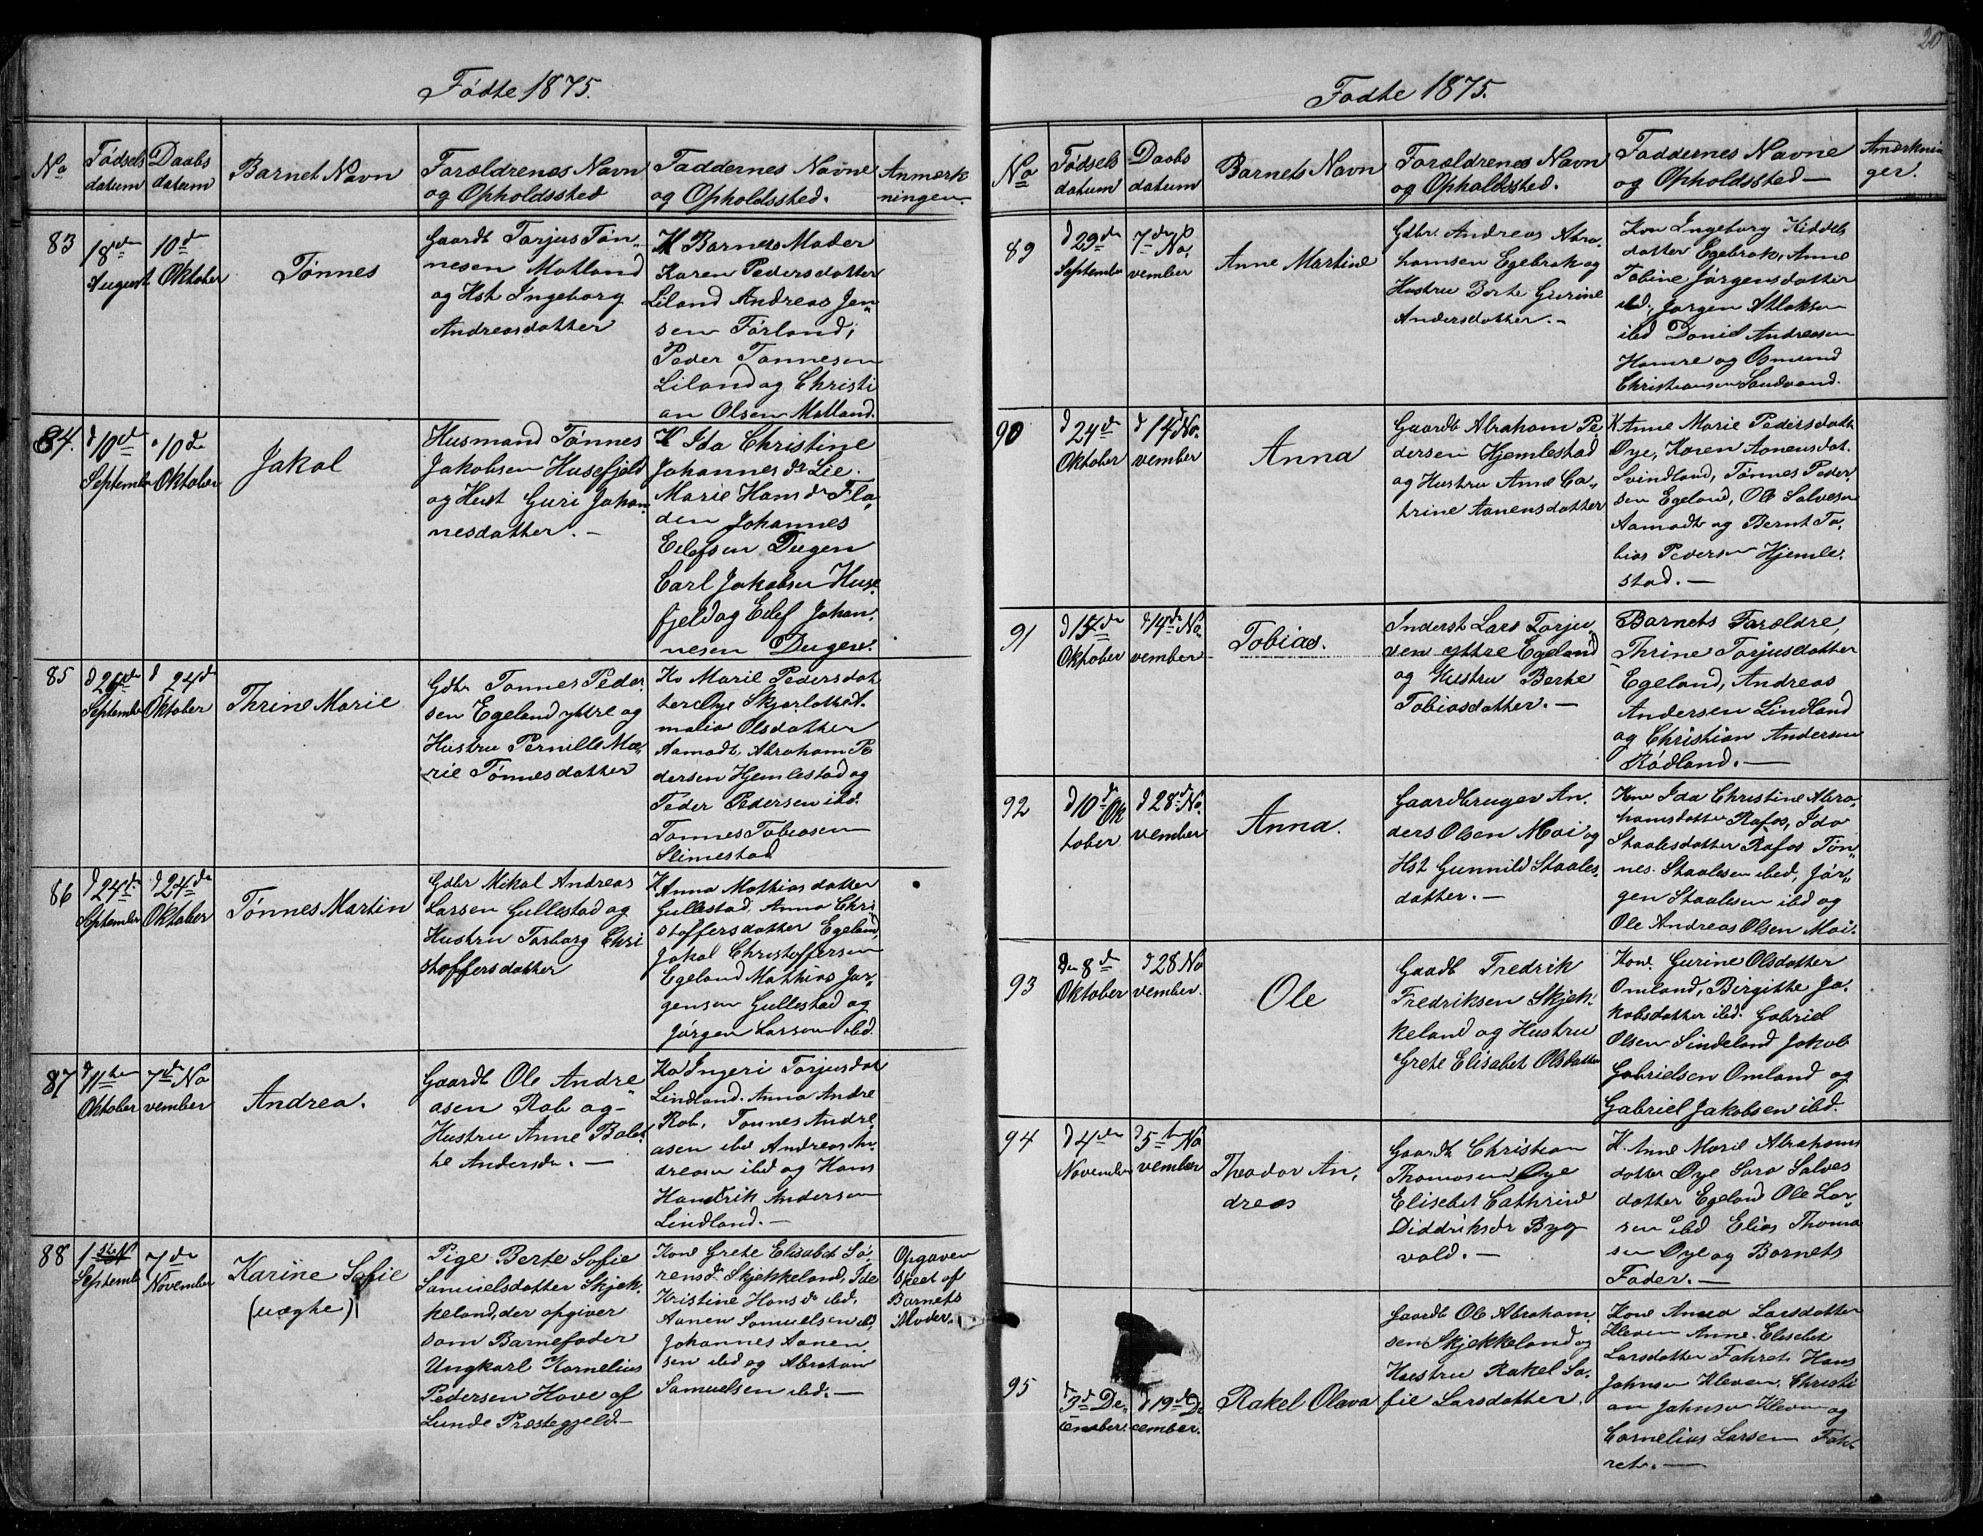 20
Fødte 1875.
No
Fødsels
datum
Daabs
datum
Barnet Navn
Forældrenes Navn
og Opholdssted
Faddernes Navne
og Opholdssted.
Anmærk
ningen
83
18de
August
10de
Oktober
Tønnes
Gaardb Torjus Tøn„
nesen Motland
og Hst Ingeborg
Andreasdatter
K Barnets Moder
Karen Pedersdatter
Liland Andreas Jen„
sen Torland,
Peder Tønnesen
Liland og Christi
an Olsen Motland.
84.
d 10de
September
10de
Oktober
Jakob
Husmand Tønnes
Jakobsen Husefjeld
og Hust Guri Johan„
nesdatter. —
K Ida Christine
Johannesdr Lie.
Marie Hansdr Fla„
den Johannes
Eilefsen Dugen
Carl Jakobsen Huse,
fjeld og Eilef Johan„
nesen Dugen.
85
September
d 24d
Oktober
Thrine Marie
Gdbr Tønnes Peder
sen Egeland yttre og
Hustru Pernille Ma„
rie Tønnesdatter
Ko Marie Pedersdat
ter Øye
malia Olsdatter
Aamodt, Abraham Pe
dersen Hjemlestad og
Peder Pedersen ibd.
Tønnes Tobiasen
Slimestad
86
d 24d.
September
d 24de
Oktober
Tønnes Martin
Gdbr Mikal Andreas
Larsen Gullestad og
Hustru Torborg Chri
stoffersdatter
K Anna Mathiasdatter
Gullestad, Anna Chri
stoffersdatter Egeland,
Jakob Christoffersen
Egeland Mathias Jør„
gensen Gullestad og
Jørgen Larsen ibd.
87
d 11te
Oktober
7de No
vember
Andrea.
Gaardb Ole Andre
asen Rob og
Hustru Anne
te Andersdr. —
Ko Ingeri Torjusdat
Lindland. Anna Andre
Rob, Tønnes Andre„
asen ibd Andreas An„
dreasen ibd og Hans
Hendrik Andersen
Lindland. —
88
1
September
7de
November
Karine Sofie
(uægte)
Pige Berte Sofie
Samuelsdatter Skjek„
keland, der opgiver
som Barnefader
Ungkarl Kornelius
Pedersen Hove af
Lunde Præstegjeld. —
Kone Grete Elisabet Sø„
rensd. Skjekkeland, Ide
Kristine Hansdr ibd.
Aanen Samuelsen ibd,
Johannes Aanen,
sen ibd og Abraham
Samuelsen ibd. —
Opgaven
skeet af
Barnets
Moder.
Fødte 1875.
No
Fødsels
datum
Daabs
datum
Barnets Navn
Forældrenes Navn
og Opholdssted.
Faddernes Navne
og Opholdssted —
Anmærknin
ger.
89
d 29de
September
7de No,
vember
Anne Martine
Gdbr. Andreas Abra„
hamsen Egebrok og
Hustru Berte Gurine
Andersdatter. —
Kon Ingeborg Kiddels
datter Egebrok, Anne
Tobine Jørgensdatter
ibd, Jørgen Atlaksen
ibd Daniel Andreasen
Homre og Osmund
Christiansen Sandvand.
90
d 24de
Oktober
d 14d No.
vember
Anna
Gaardb Abraham Pe
dersen Hjemlestad
og Hustru Anne Ca„
trine Aanensdatter
K Anne Marie Pedersdatt
Øye, Karen Aanensdat.
Svindland, Tønnes Peder
sen Egeland, Ole Salvesen
Aamodt og Bernt To„
bias Pedersen Hjemle„
stad. —
91
d 15de
Oktober
d 14de No.
vember
Tobias.
Inderst Lars Torju
sen yttre Egeland
og Hustru Berte
Tobiasdatter. —
Barnets Forældre,
Thrine Torjusdatter
Egeland, Andreas
Andersen Lindland
og Christian Andersen
Rødland. —
92
d 10d Ok
tober
d 28d No.
vember
Anna.
Gaardbruger An„
ders Olsen Moi og
Hst Gunnild Staales„
datter. —
Kone Ida Christine Abra„
hamsdatter Rafos, Ida
Staalesdatter Rafos Tøn„
nes. Staalesen ibd, Jør„
gen Staalesen ibd og
Ole Andreas Olsen Moi.
93
den 8de
Oktober
d 28 No
vember.
Ole
Gaardb Fredrik
Fredriksen Skjek„
keland og Hustru
Grete Elisabet Olsdatter
Kone. Gurine Olsdatter
Omland, Birgitte Ja„
kobsdatter ibd. Gabriel
Olsen Sindland Jakob
Gabrielsen Omland og
Gabriel Jakobsen ibd.
94
d 4de
November
d 5te No
vember
Theodor An,
dreas
Gaardb Christian
Thomasen Øye
Elisebet Cathrine
Diddriksdr Byg
vold. —
K. Anne Marie Abrahams
datter Øye Sara Salves
datter Egeland Ole Lar„
sen ibd Elias Thoma
sen Øye og Barnets
Fader. —
95
3de De„
cember.
d 19de De
cember.
Rakel Olava
Gaardb Ole Abraham„
sen Skjekkeland og
Hustru Rakel So„
fie Larsdatter.
Kone Anna Larsdatter
Kleven Anne Elisebet
Larsdatter Fahret, Hans
Johnsen Kleven, Christi
an Johnsen Kleven og
Cornelius Larsen Fah„
ret. —